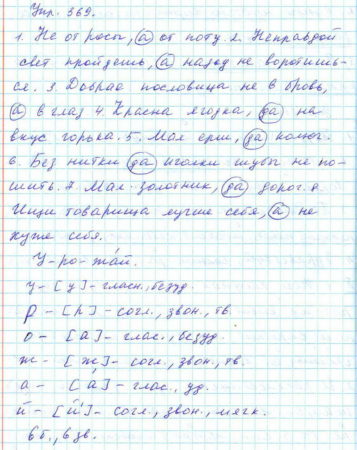 Упр. 369.
1. Не от росы, а от поту. 2. Неправдой
свет пройдешь, а назад не воротишь-
ся. 3. Добрая пословица не в бровь,
а в глаз. 4. Красна ягодка, да на
вкус горька. 5. Мал ерш, да колюч.
6. Без нитки да иголки шубы не по-
шить. 7. Мал золотник, да дорог. 8.
Ищи товарища лучше себя, а не
хуже себя.
У-ро-жа́й.
у - [у] - гласн., безуд
р - [р] - согл., звон., тв.
о - [а] - глас., безуд.
ж - [ж] - согл., звон., тв.
а - [а́] - глас., уд.
й - [й'] - согл., звон., мягк.
6 б., 6 зв.